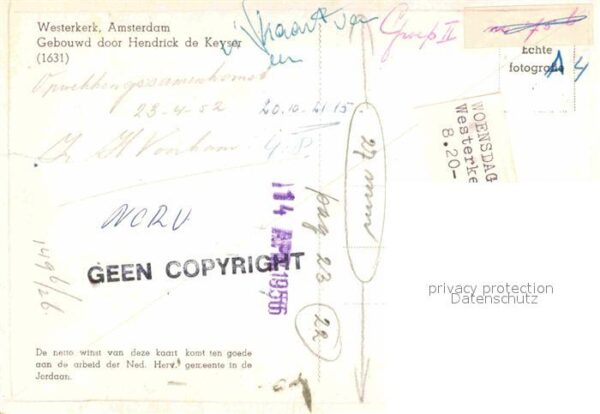 Westerkerk, Amsterdam
Gebouwd door Hendrick de Keyser
(1631)
kaart van
Groep II
Echte
fotografie
A 4
23-4-52 20.10-21.15
WOENSDAG
Westerke
8.20-
NCRV
GEEN COPYRIGHT
14 APR 1956
pag 23
22
27 mm
1496/26
privacy protection
Datenschutz
De netto winst van deze kaart komt ten goede
aan de arbeid der Ned. Herv. gemeente in de
Jordaan.